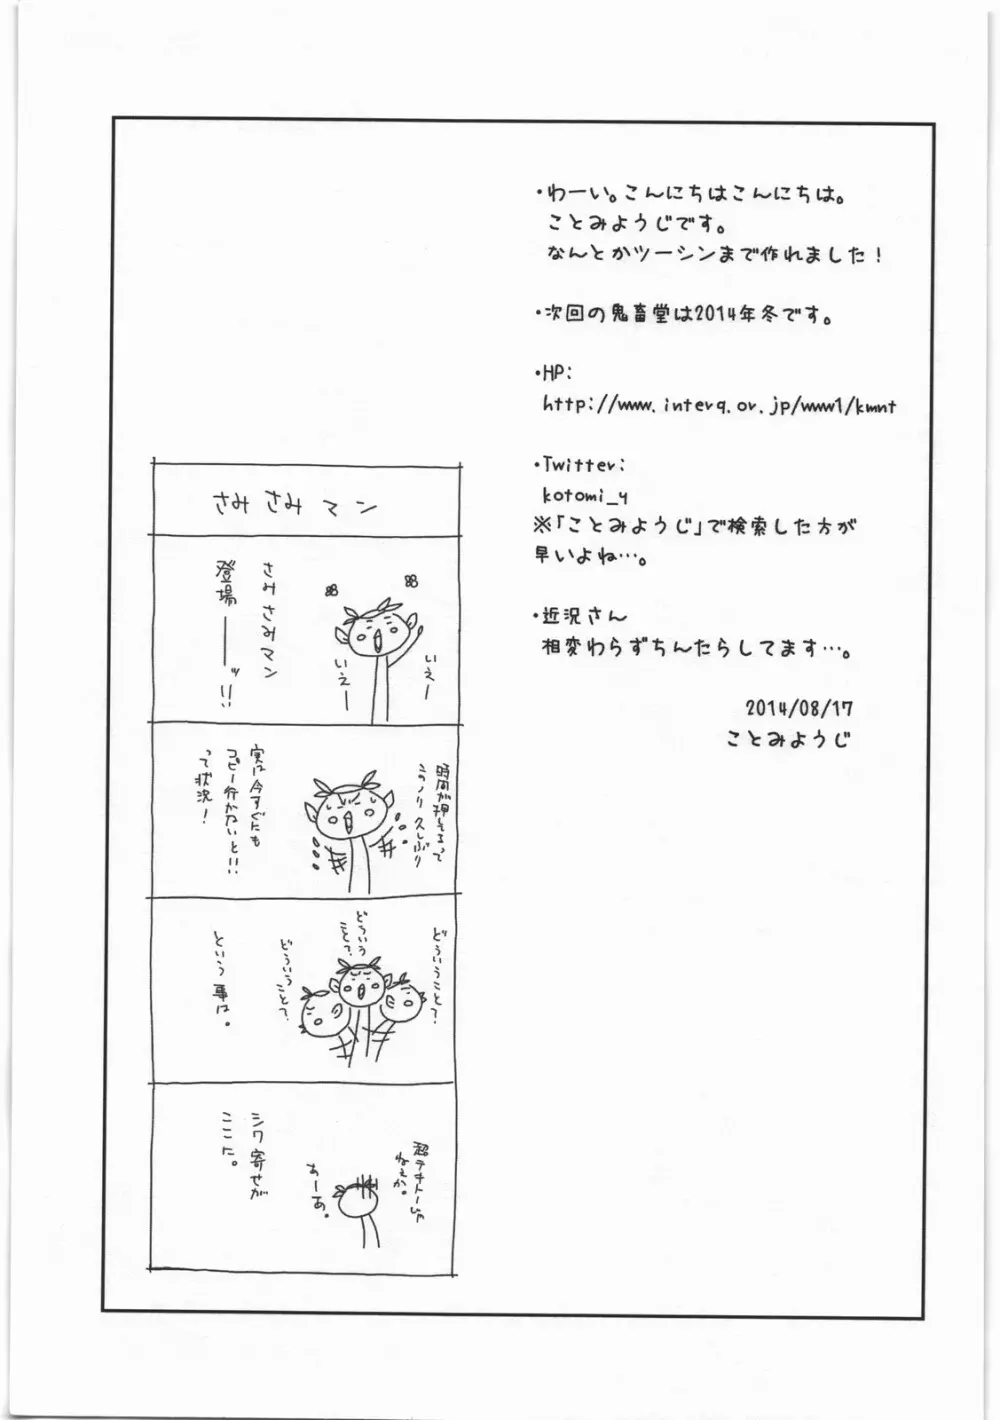 ・わーい。こんにちはこんにちは。
ことみようじです。
なんとかツーシンまで作れました！
・次回の鬼畜堂は2014年冬です。
・HP:
http://www.interq.or.jp/www1/kmnt
・Twitter:
kotomi_y
※「ことみようじ」で検索した方が
早いよね…。
・近況さん
相変わらずちんたらしてます…。
2014/08/17
ことみようじ
さみさみマン
さみさみマン
登場――ッ!!
いえー
いえー
時間が押せまって
このノリ久しぶり
実は今すぐにも
コピー行かないと!!
って状況！
どういうこと？
どういう
こと？
どういうこと？
という事は。
超テキトーじゃ
ねぇか。
あーあ。
シワ寄せが
ここに。